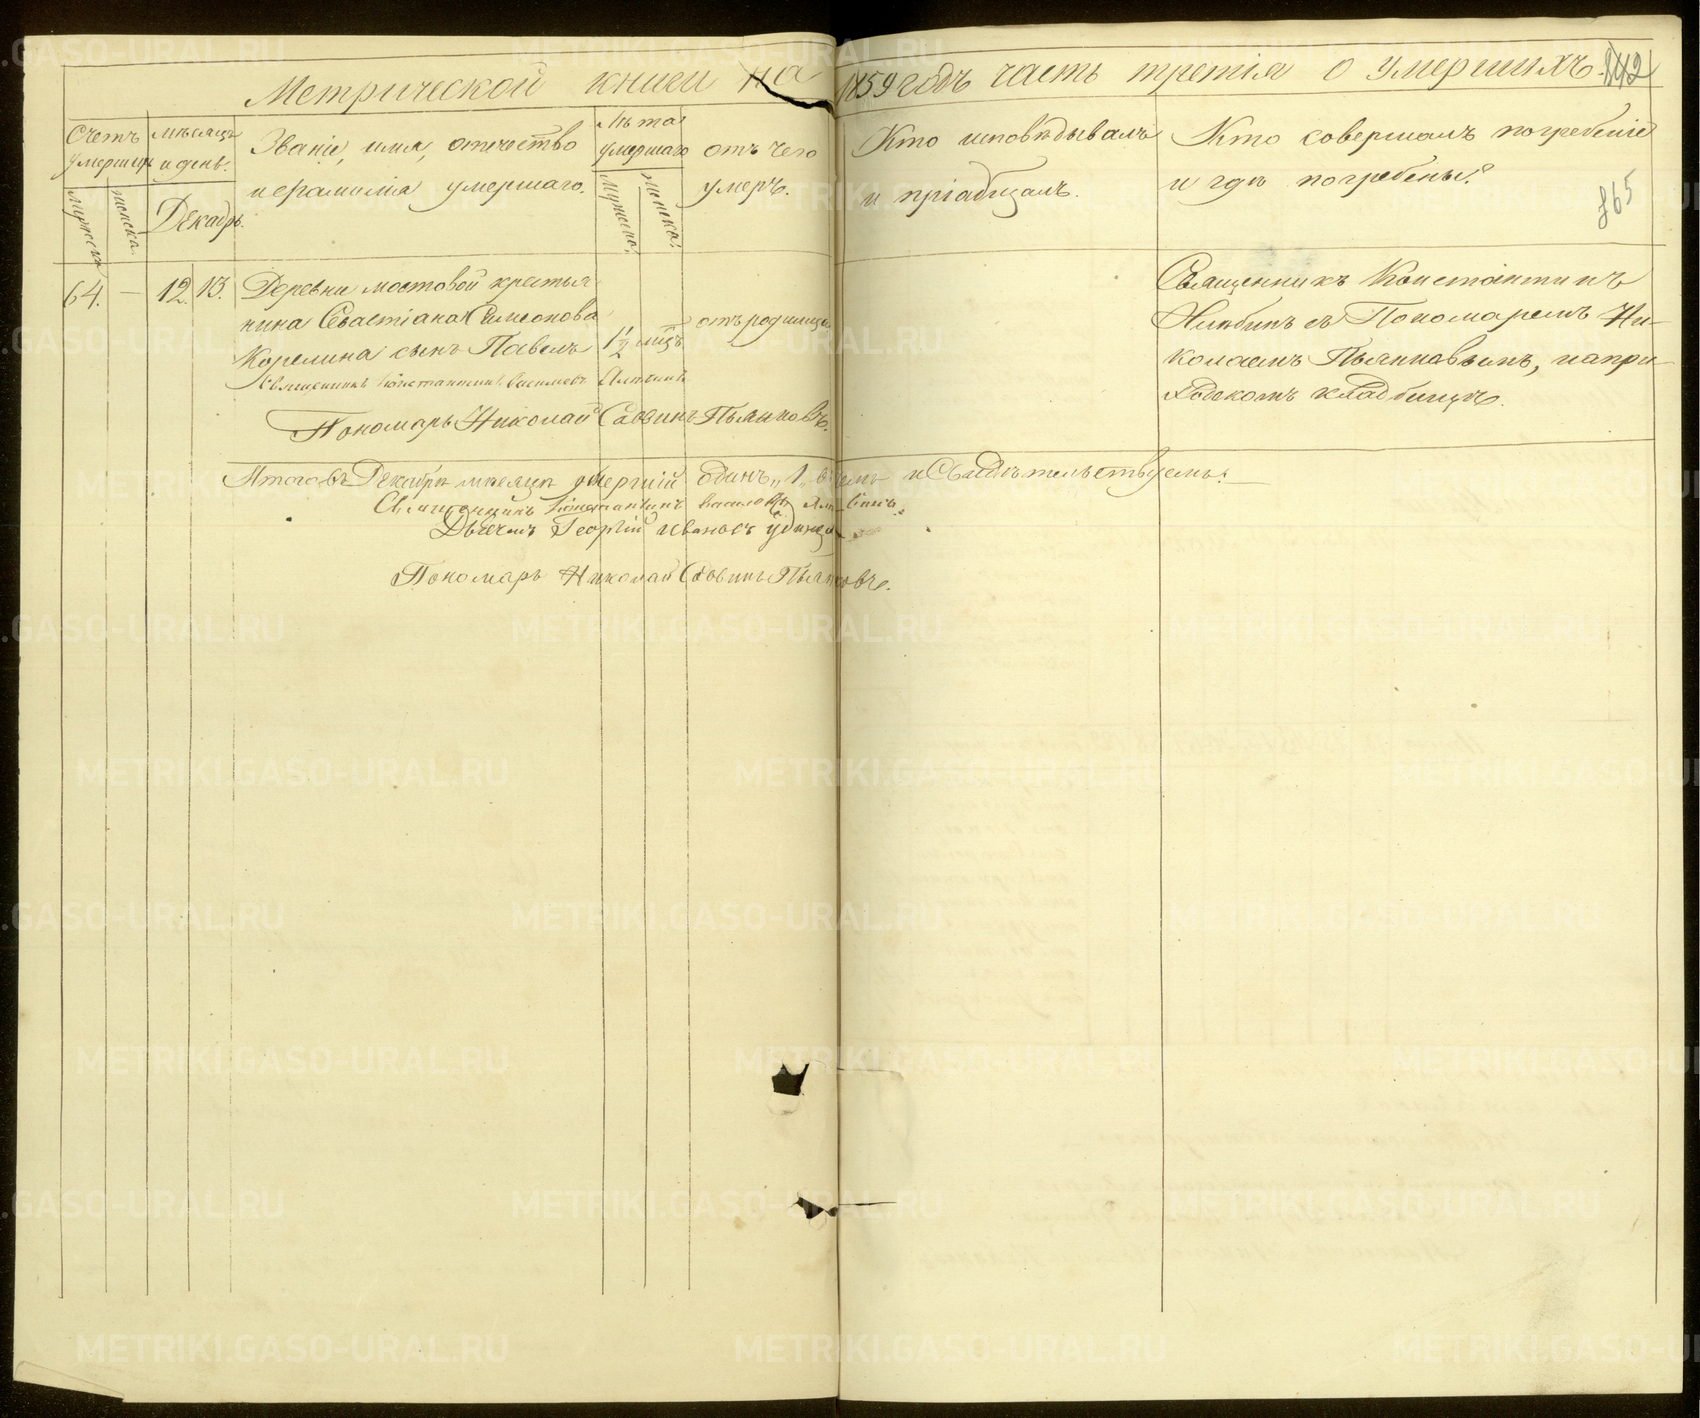 Метрической книги на 1859 годъ часть третія о умершихъ. 242
865
Счетъ умершихъ
Мужеска
женска
мѣсяцъ и день.
Декабрь.
Званіе, имя, отчество
и фамилія умершаго.
Лѣта умершаго
Мужеска
Женска
отъ чего
умеръ.
Кто исповѣдывалъ
и пріабщалъ.
Кто совершалъ погребеніе
и гдѣ погребены?
64. — 12. 13. Деревни мостовой крестья
нина Севастіана Симеонова
Корелина сынъ Павелъ
1 1/2 мѣсц
отъ родимца.
Священникъ Константинъ
съ Пономаремъ Ни-
колаемъ Пьянковымъ, на при-
ходскомъ кладбищѣ.
Священникъ Константинъ
Пономарь Николай Саввинъ Пьянковъ.
Итого въ Декабрѣ мѣсяцѣ умершій одинъ „1„ въ чемъ и Свидѣтельствуемъ:
Священникъ Константинъ
Дьячекъ Георгій Ивановъ Удинцо
Пономарь Николай Саввинъ Пьянковъ.
METRIKI.GASO-URAL.RU